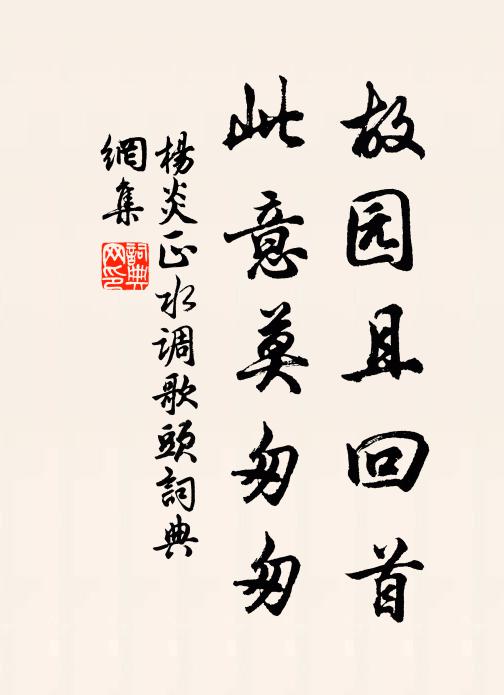 故园且回首
此意莫匆匆
楊炎正水调歌頭詞典
網集
詞典网印